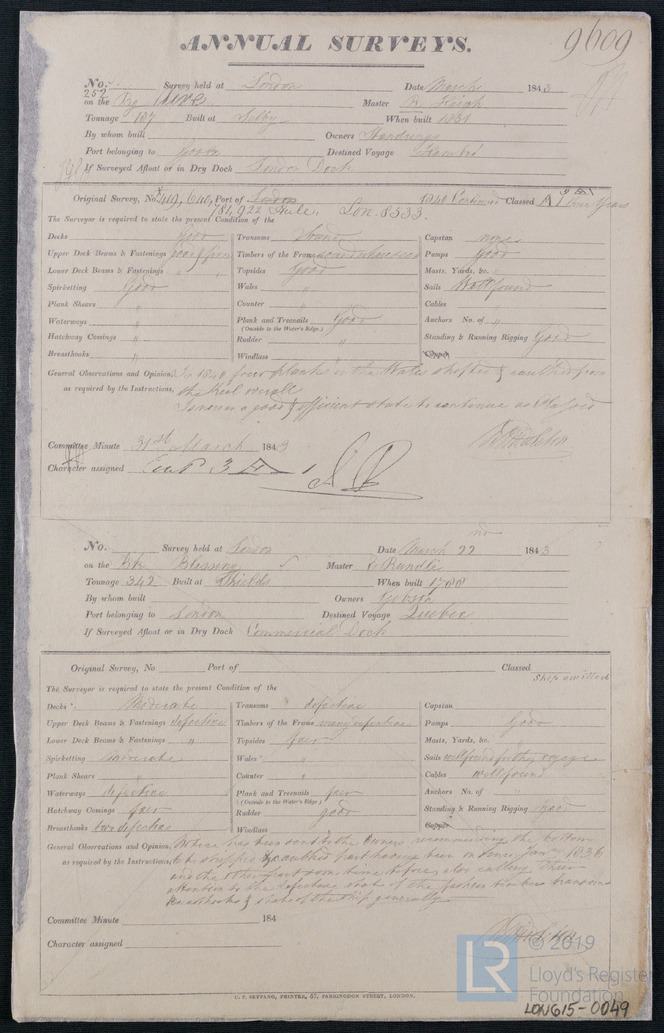 ANNUAL SURVEYS.
9609
No. 252 Survey held at London Date March 1843
on the Master
Tonnage 107 Built at Selby When built 1831
By whom built Owners
Port belonging to Goole Destined Voyage
If Surveyed Afloat or in Dry Dock London Dock
Original Survey, No. Port of London 1840 Continued Classed A1 Years
922 Hull. Lon. 8533.
The Surveyor is required to state the present Condition of the
Decks Good Transoms Sound Capstan none
Upper Deck Beams & Fastenings Timbers of the Frame Pumps Good
Lower Deck Beams & Fastenings " Topsides Good Masts, Yards, &c. "
Spirketting Good Wales " Sails Well found
Plank Shears " Counter " Cables
Waterways " Plank and Treenails Good Anchors No. of "
(Outside to the Water's Edge)
Hatchway Comings " Rudder " Standing & Running Rigging Good
Breasthooks " Windlass " Copper
General Observations and Opinion, In 1840 four planks in the Wales shifted & caulked from
as required by the Instructions, the Keel overall
Is now in a good & efficient state to continue as Classed
Committee Minute 31st March 1843
Character assigned
No. Survey held at London Date March 22nd 1843
on the Bk Blessing Master Rundle
Tonnage 342 Built at Shields When built 1788
By whom built Owners
Port belonging to London Destined Voyage Quebec
If Surveyed Afloat or in Dry Dock Commercial Dock
Original Survey, No Port of Classed
Ship omitted
The Surveyor is required to state the present Condition of the
Decks Moderate Transoms defective Capstan
Upper Deck Beams & Fastenings defective Timbers of the Frame many defective Pumps Good
Lower Deck Beams & Fastenings " Topsides fair Masts, Yards, &c.
Spirketting Moderate Wales " Sails well found for the voyage
Plank Shears " Counter " Cables well found
Waterways defective Plank and Treenails fair Anchors No. of "
(Outside to the Water's Edge)
Hatchway Comings fair Rudder good Standing & Running Rigging good
Breasthooks two defective Windlass Copper
General Observations and Opinion, has been sent to the Owners recommending the bottom
as required by the Instructions, to be stripped & caulked part having been on since Jany 1836
and the other part some time before also calling their
attention to the defective state of the timbers transoms
Breasthooks & state of the ship generally
Committee Minute 184
Character assigned
© 2019
Lloyd's Register
Foundation
LR
C. F. SEYFANG, PRINTER, 57, FARRINGDON STREET, LONDON.
LON615-0049